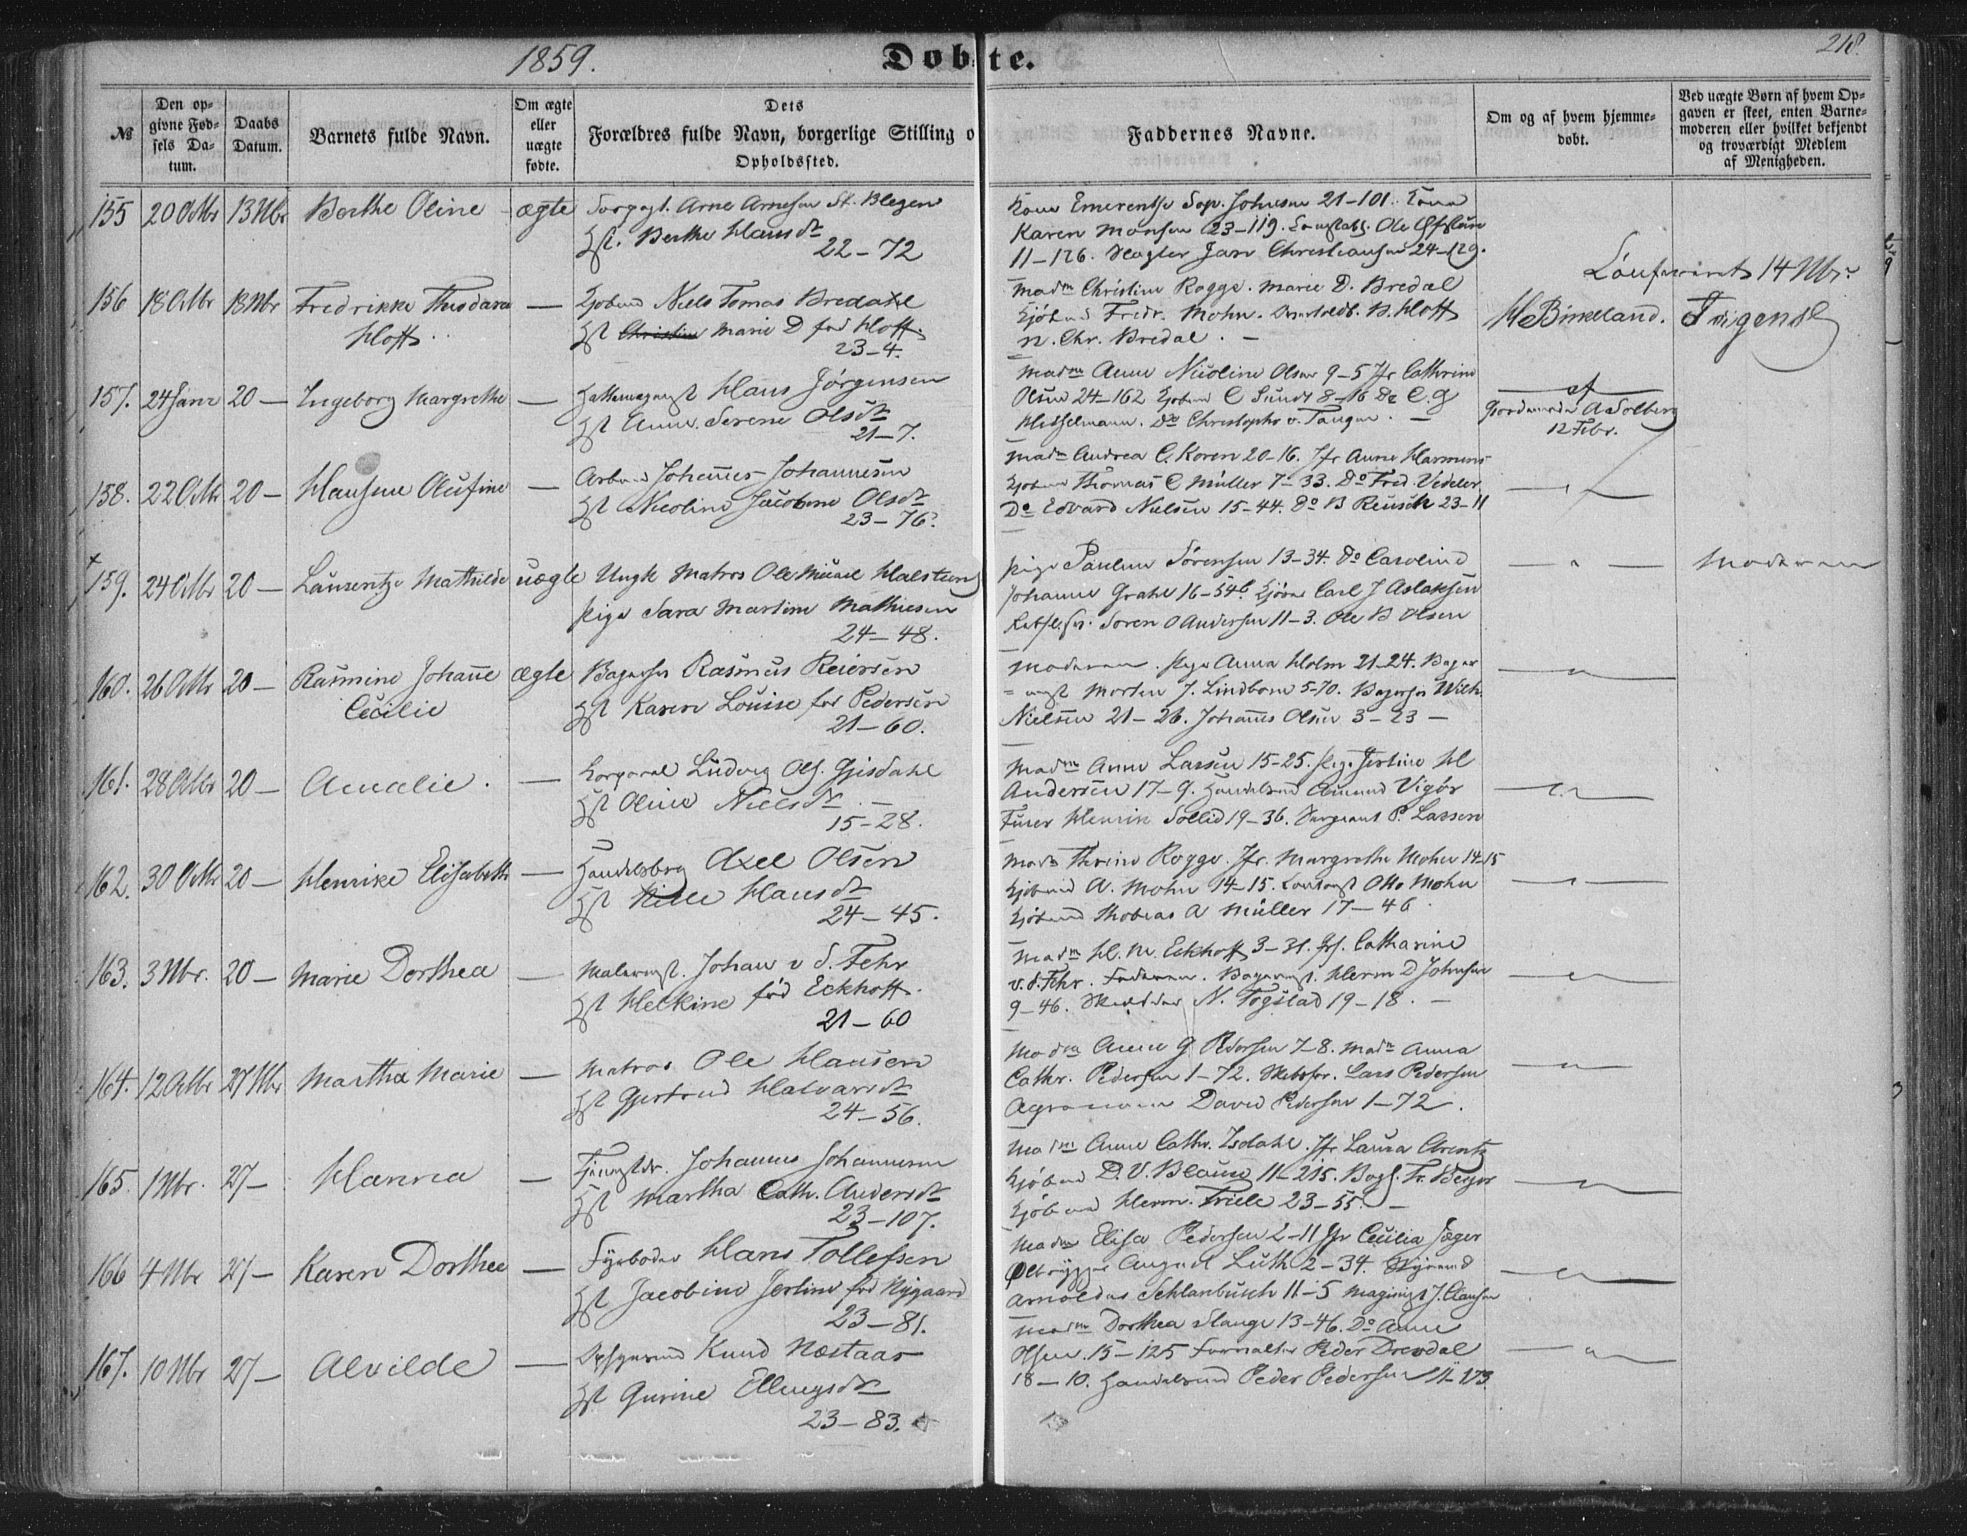 1859.
Døbte.
218.
№
Den opgivne Fødsels Datum.
Daabs Datum.
Barnets fulde Navn.
Om ægte eller uægte fødte.
Dets Forældres fulde Navn, borgerlige Stilling o
Opholdssted.
Faddernes Navne.
Om og af hvem hjemmedøbt.
Ved uægte Børn af hvem Opgaven er skeet, enten Barnemoderen eller hvilket bekjendt og troværdigt Medlem af Menigheden.
155 20 Octbr 13 Nbr Berthe Oline - ægte Arne Arnesen St. Blegen
Hst. Berthe Hansdt
22-72
Karen Monsen 23-119. Ole
11-126. Jan Christiansen 24-129.
14 Nbr
156 18 Octbr 18 Nbr Fredrikke Theodora — Niels Tomas Bredahl
Hoff.
Hst Christine Marie D fød Hoff.
23-4.
Madm Christine Rogge. Marie D. Bredal
Kjøbmd Fredr. Mohn. B. Hoff
N. Chr. Bredal. —
H Birkeland.
157. 24 Janr 20 — Ingeborg Margrethe — Hans Jørgensen
Hst Anne Serene Olsdt
21-7.
Madm Anne Nicoline Olsen 9-5 Jfr Cathrine
Olsen 24-162 Kjøbmd C Sundt 8-16 Do C. G
Do Christopher v. Tangen —
af
A Solberg
12 Febr.
158. 22 Octbr 20 — Hansine Olufine — Arbmd Johannes Johannesen
Hst Nicoline Jacobine Olsdt
23-76.
Madm Andrea C. Koren 20-16. Jfr Anne Harmens
Kjøbmd Thomas C Müller 7-33. Do Fred. Vedeler
Do Edvard Nielsen 15-44. Do B Reusch 23-11
159. 24 Octbr 20 — Laurentze Mathilde uægte Ungk Matros Ole Mikael Halsteen
Pige Sara Martine Mathiesen
24-48.
Pige Pauline Sørensen 13-34. Do Caroline
Johanne Grahl 16-54b Kjøbmd Carl J Aslaksen
Søren O Andersen 11-3. Ole B Olsen
Moderen
160. 26 Octbr 20 — Rasmine Johanne ægte Rasmus Reiersen
Cecilie
Hst Karen Louise fød Pedersen
21-60.
Moderen. Pige Anna Holm 21-24. Bager
Morten J. Lindborn 5-70. Wilh.
Nielsen 21-26. Johannes Olsen 3-23 —
161. 28 Octbr 20 — Amalie. — Korporal Ludvig Ols. Gjisdahl
Hst Oline Nielsdt. —
15-28.
Madm Anne Lassen 15-25. Pige Jertine H
Andersen 17-9. Handelsmd Amund Vigør
Furer Henrik Sollid 19-36. Sergeant P. Lassen
162. 30 Octbr 20 — Henrike Elisabeth — Handelsborg Axel Olsen
Hst Hansdt
24-45.
Madm Thrine Rogge. Jfr. Margrethe Mohn 14-15
Kjøbmd A. Mohn 14-15. Otto Mohn
Kjøbmd Thobias A Müller 17-46
163. 3 Nbr. 20 — Marie Dorthea — Malermst. Johan v d. Fehr
Hst Helkine fød Eckhoff.
21-60
Madm H. M. Eckhoff 3-31. Catharine
v. d. Fehr. Faderen. Bagermst. Herm D Johnsen
9-46. N. Togstad 19-18. —
164. 12 Octbr 27 Nbr Martha Marie — Matros Ole Hansen
Hst Gjertrud Halvarsdt
24-56.
Madm Anne G Pedersen 7-8. Madm Anna
Cathr. Pedersen 1-72. Lars Pedersen
Agronom David Pedersen 1-72.
165. 1 Nbr. 27 — Hanna — Johannes Johannesen
Hst Martha Cath. Andersdt
23-107.
Madm Anne Cathr. Isdahl. Jfr Laura Arentz
Kjøbmd D. V. Blaauw 11-215. Fr. Beyer
Kjøbmd Herm. Friele 23-55. —
166 4 Nbr 27 — Karen Dorthee — Fyrbøder Hans Tollefsen
Hst Jacobine Jertine fød Nygaard
23-81.
Madm Elisa Pedersen 2-11 Jfr Cecilia Jæger
Ølbrygger August Luth 2-34.
Arnoldus Schlanbusch 11-5 J. Clausen
167. 10 Nbr 27 — Alvilde — Knud Næstaas
Hst Gurine Ellingsdt
23-83.
Madm Dorthea Stange 13-46. Do Anne
Olsen. 15-125 Forvalter Peder Drevdal
18-10. Handelsmd Peder Pedersen 11-173.